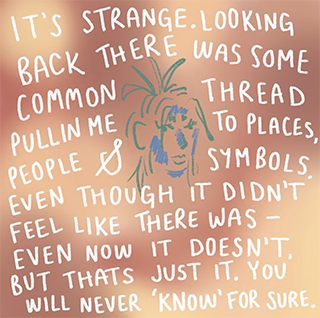 IT'S STRANGE. LOOKING
BACK THERE WAS SOME
COMMON THREAD
PULLIN ME TO PLACES,
PEOPLE & SYMBOLS.
EVEN THOUGH IT DIDN'T
FEEL LIKE THERE WAS –
EVEN NOW IT DOESN'T,
BUT THATS JUST IT. YOU
WILL NEVER 'KNOW' FOR SURE.